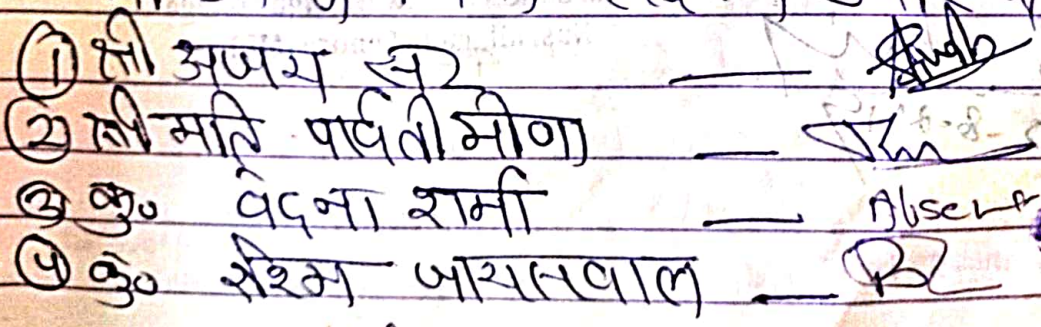 ① श्री अजय सर —
② श्री मति पार्वती मीणा —
③ कु० वंदना शर्मा — Absent
④ कु० रश्मि जायसवाल —